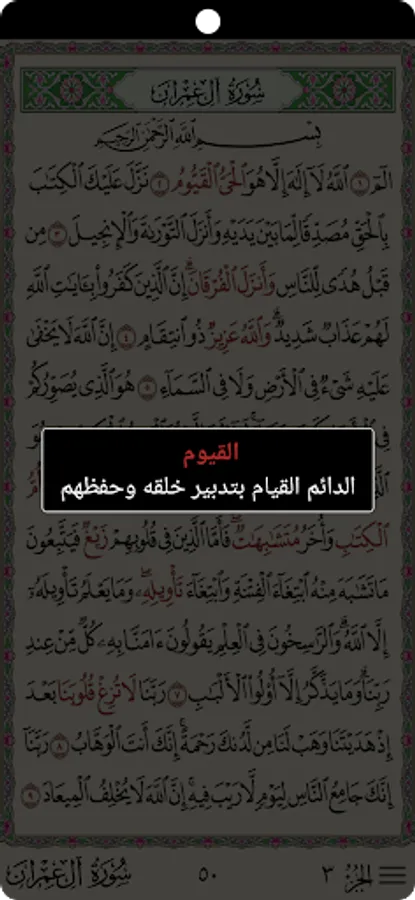 سُورَةُ آلِ عِمْرَانَ
بِسْمِ اللَّهِ الرَّحْمَٰنِ الرَّحِيمِ
الٓمٓ ١ ٱللَّهُ لَآ إِلَٰهَ إِلَّا هُوَ ٱلْحَىُّ ٱلْقَيُّومُ ٢ نَزَّلَ عَلَيْكَ ٱلْكِتَٰبَ
بِٱلْحَقِّ مُصَدِّقًا لِّمَا بَيْنَ يَدَيْهِ وَأَنزَلَ ٱلتَّوْرَىٰةَ وَٱلْإِنجِيلَ ٣ مِن
قَبْلُ هُدًى لِّلنَّاسِ وَأَنزَلَ ٱلْفُرْقَانَ إِنَّ ٱلَّذِينَ كَفَرُوا۟ بِـَٔايَٰتِ ٱللَّهِ
لَهُمْ عَذَابٌ شَدِيدٌ وَٱللَّهُ عَزِيزٌ ذُو ٱنتِقَامٍ ٤ إِنَّ ٱللَّهَ لَا يَخْفَىٰ
عَلَيْهِ شَىْءٌ فِى ٱلْأَرْضِ وَلَا فِى ٱلسَّمَآءِ ٥ هُوَ ٱلَّذِى يُصَوِّرُكُمْ
القيوم
الدائم القيام بتدبير خلقه وحفظهم
ٱلْكِتَٰبِ وَأُخَرُ مُتَشَٰبِهَٰتٌ فَأَمَّا ٱلَّذِينَ فِى قُلُوبِهِمْ زَيْغٌ فَيَتَّبِعُونَ
مَا تَشَٰبَهَ مِنْهُ ٱبْتِغَآءَ ٱلْفِتْنَةِ وَٱبْتِغَآءَ تَأْوِيلِهِۦ وَمَا يَعْلَمُ تَأْوِيلَهُۥٓ
إِلَّا ٱللَّهُ وَٱلرَّٰسِخُونَ فِى ٱلْعِلْمِ يَقُولُونَ ءَامَنَّا بِهِۦ كُلٌّ مِّنْ عِندِ
رَبِّنَا وَمَا يَذَّكَّرُ إِلَّآ أُو۟لُوا۟ ٱلْأَلْبَٰبِ ٧ رَبَّنَا لَا تُزِغْ قُلُوبَنَا بَعْدَ
إِذْ هَدَيْتَنَا وَهَبْ لَنَا مِن لَّدُنكَ رَحْمَةً إِنَّكَ أَنتَ ٱلْوَهَّابُ ٨ رَبَّنَآ
إِنَّكَ جَامِعُ ٱلنَّاسِ لِيَوْمٍ لَّا رَيْبَ فِيهِ إِنَّ ٱللَّهَ لَا يُخْلِفُ ٱلْمِيعَادَ ٩
الجزء ٣
٥٠
سُورَةُ آلِ عِمْرَانَ